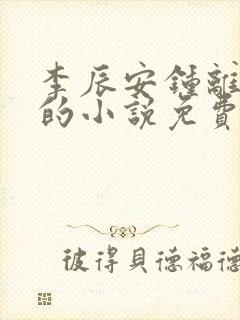 李辰安鍾離
的小說免費
彼得貝德福德